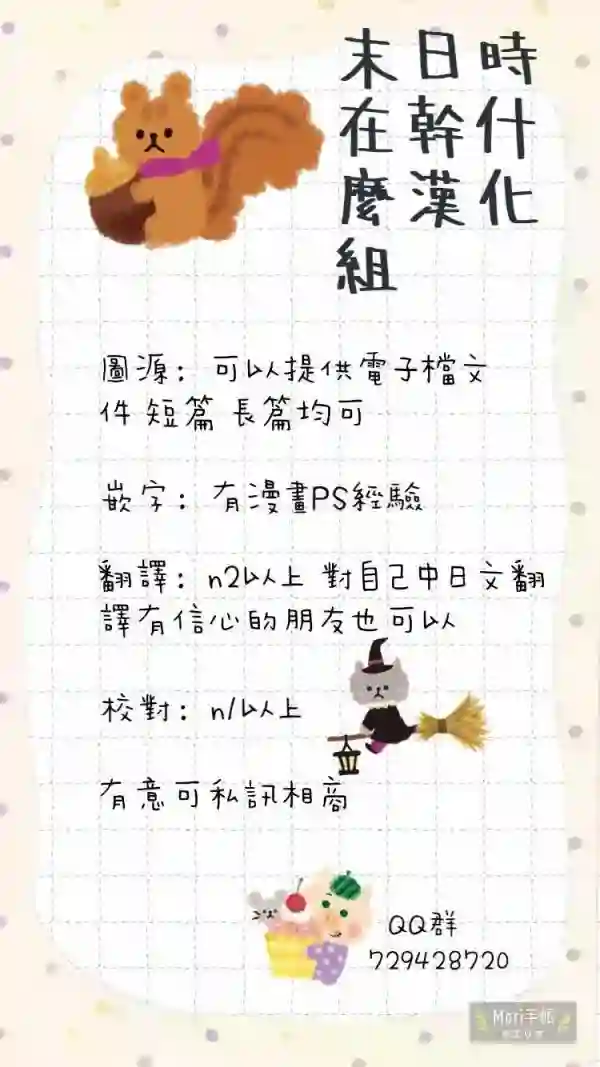 末日時
在幹什
麼漢化
組
圖源：可以提供電子檔文
件 短篇 長篇均可
嵌字：有漫畫PS經驗
翻譯：n2以上 對自己中日文翻
譯有信心的朋友也可以
校對：n1以上
有意可私訊相商
QQ群
729428720
Mori手帳